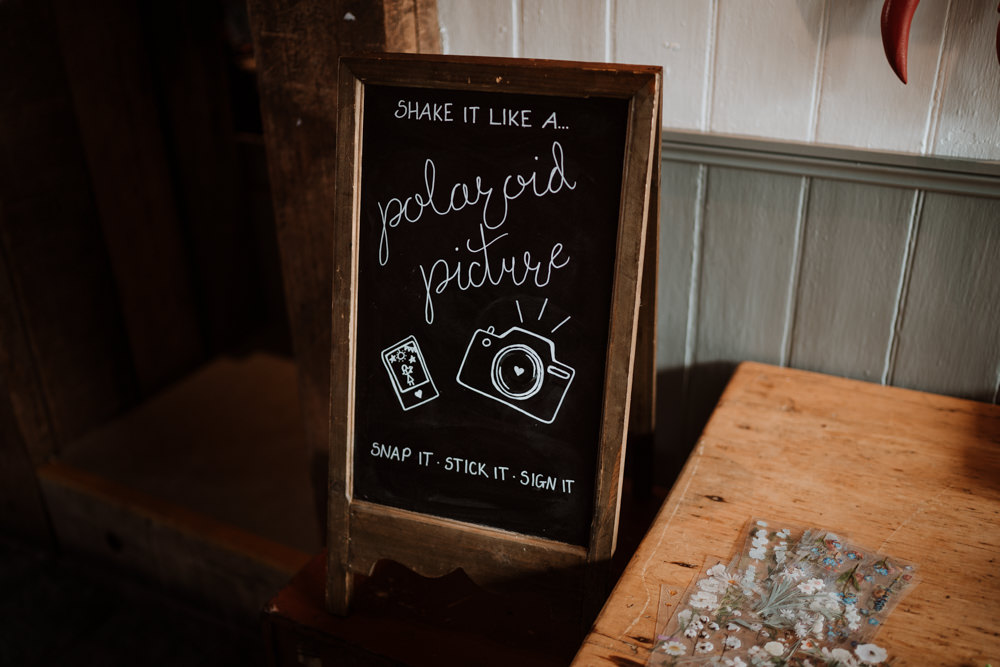 SHAKE IT LIKE A...
polaroid
picture
SNAP IT · STICK IT · SIGN IT